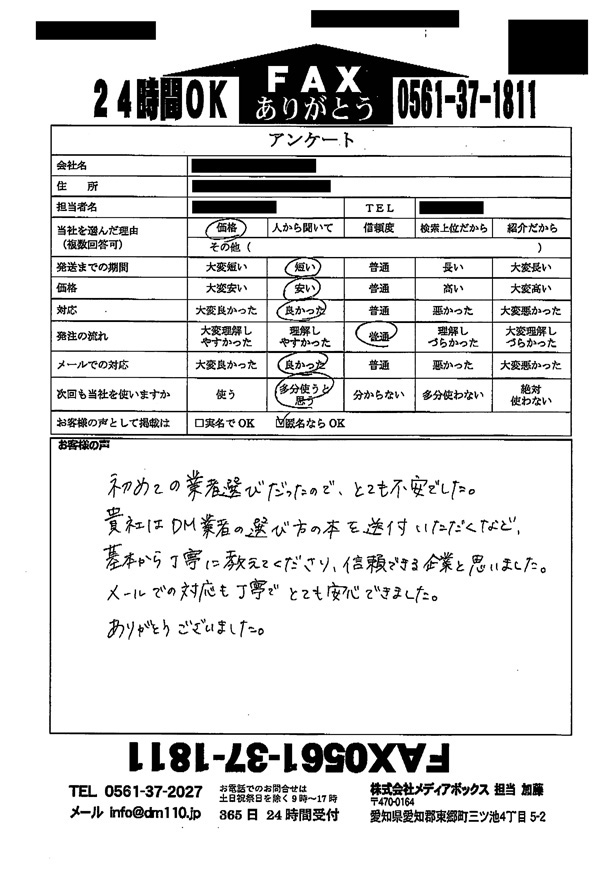 24時間OK
FAX
ありがとう
0561-37-1811
アンケート
会社名
住 所
担当者名 TEL
当社を選んだ理由（複数回答可） 価格 人から聞いて 信頼度 検索上位だから 紹介だから
その他（ ）
発送までの期間 大変短い 短い 普通 長い 大変長い
価格 大変安い 安い 普通 高い 大変高い
対応 大変良かった 良かった 普通 悪かった 大変悪かった
発注の流れ 大変理解しやすかった 理解しやすかった 普通 理解しづらかった 大変理解しづらかった
メールでの対応 大変良かった 良かった 普通 悪かった 大変悪かった
次回も当社を使いますか 使う 多分使うと思う 分からない 多分使わない 絶対使わない
お客様の声として掲載は □実名でOK ☑匿名ならOK
お客様の声
初めての業者選びだったので、とても不安でした。
貴社はDM業者の選び方の本を送付いただくなど、
基本から丁寧に教えてくださり、信頼できる企業と思いました。
メールでの対応も丁寧でとても安心できました。
ありがとうございました。
FAX0561-37-1811
TEL 0561-37-2027
メール info@dm110.jp
お電話でのお問合せは
土日祝祭日を除く9時～17時
365日 24時間受付
株式会社メディアボックス 担当 加藤
〒470-0164
愛知県愛知郡東郷町三ツ池4丁目5-2